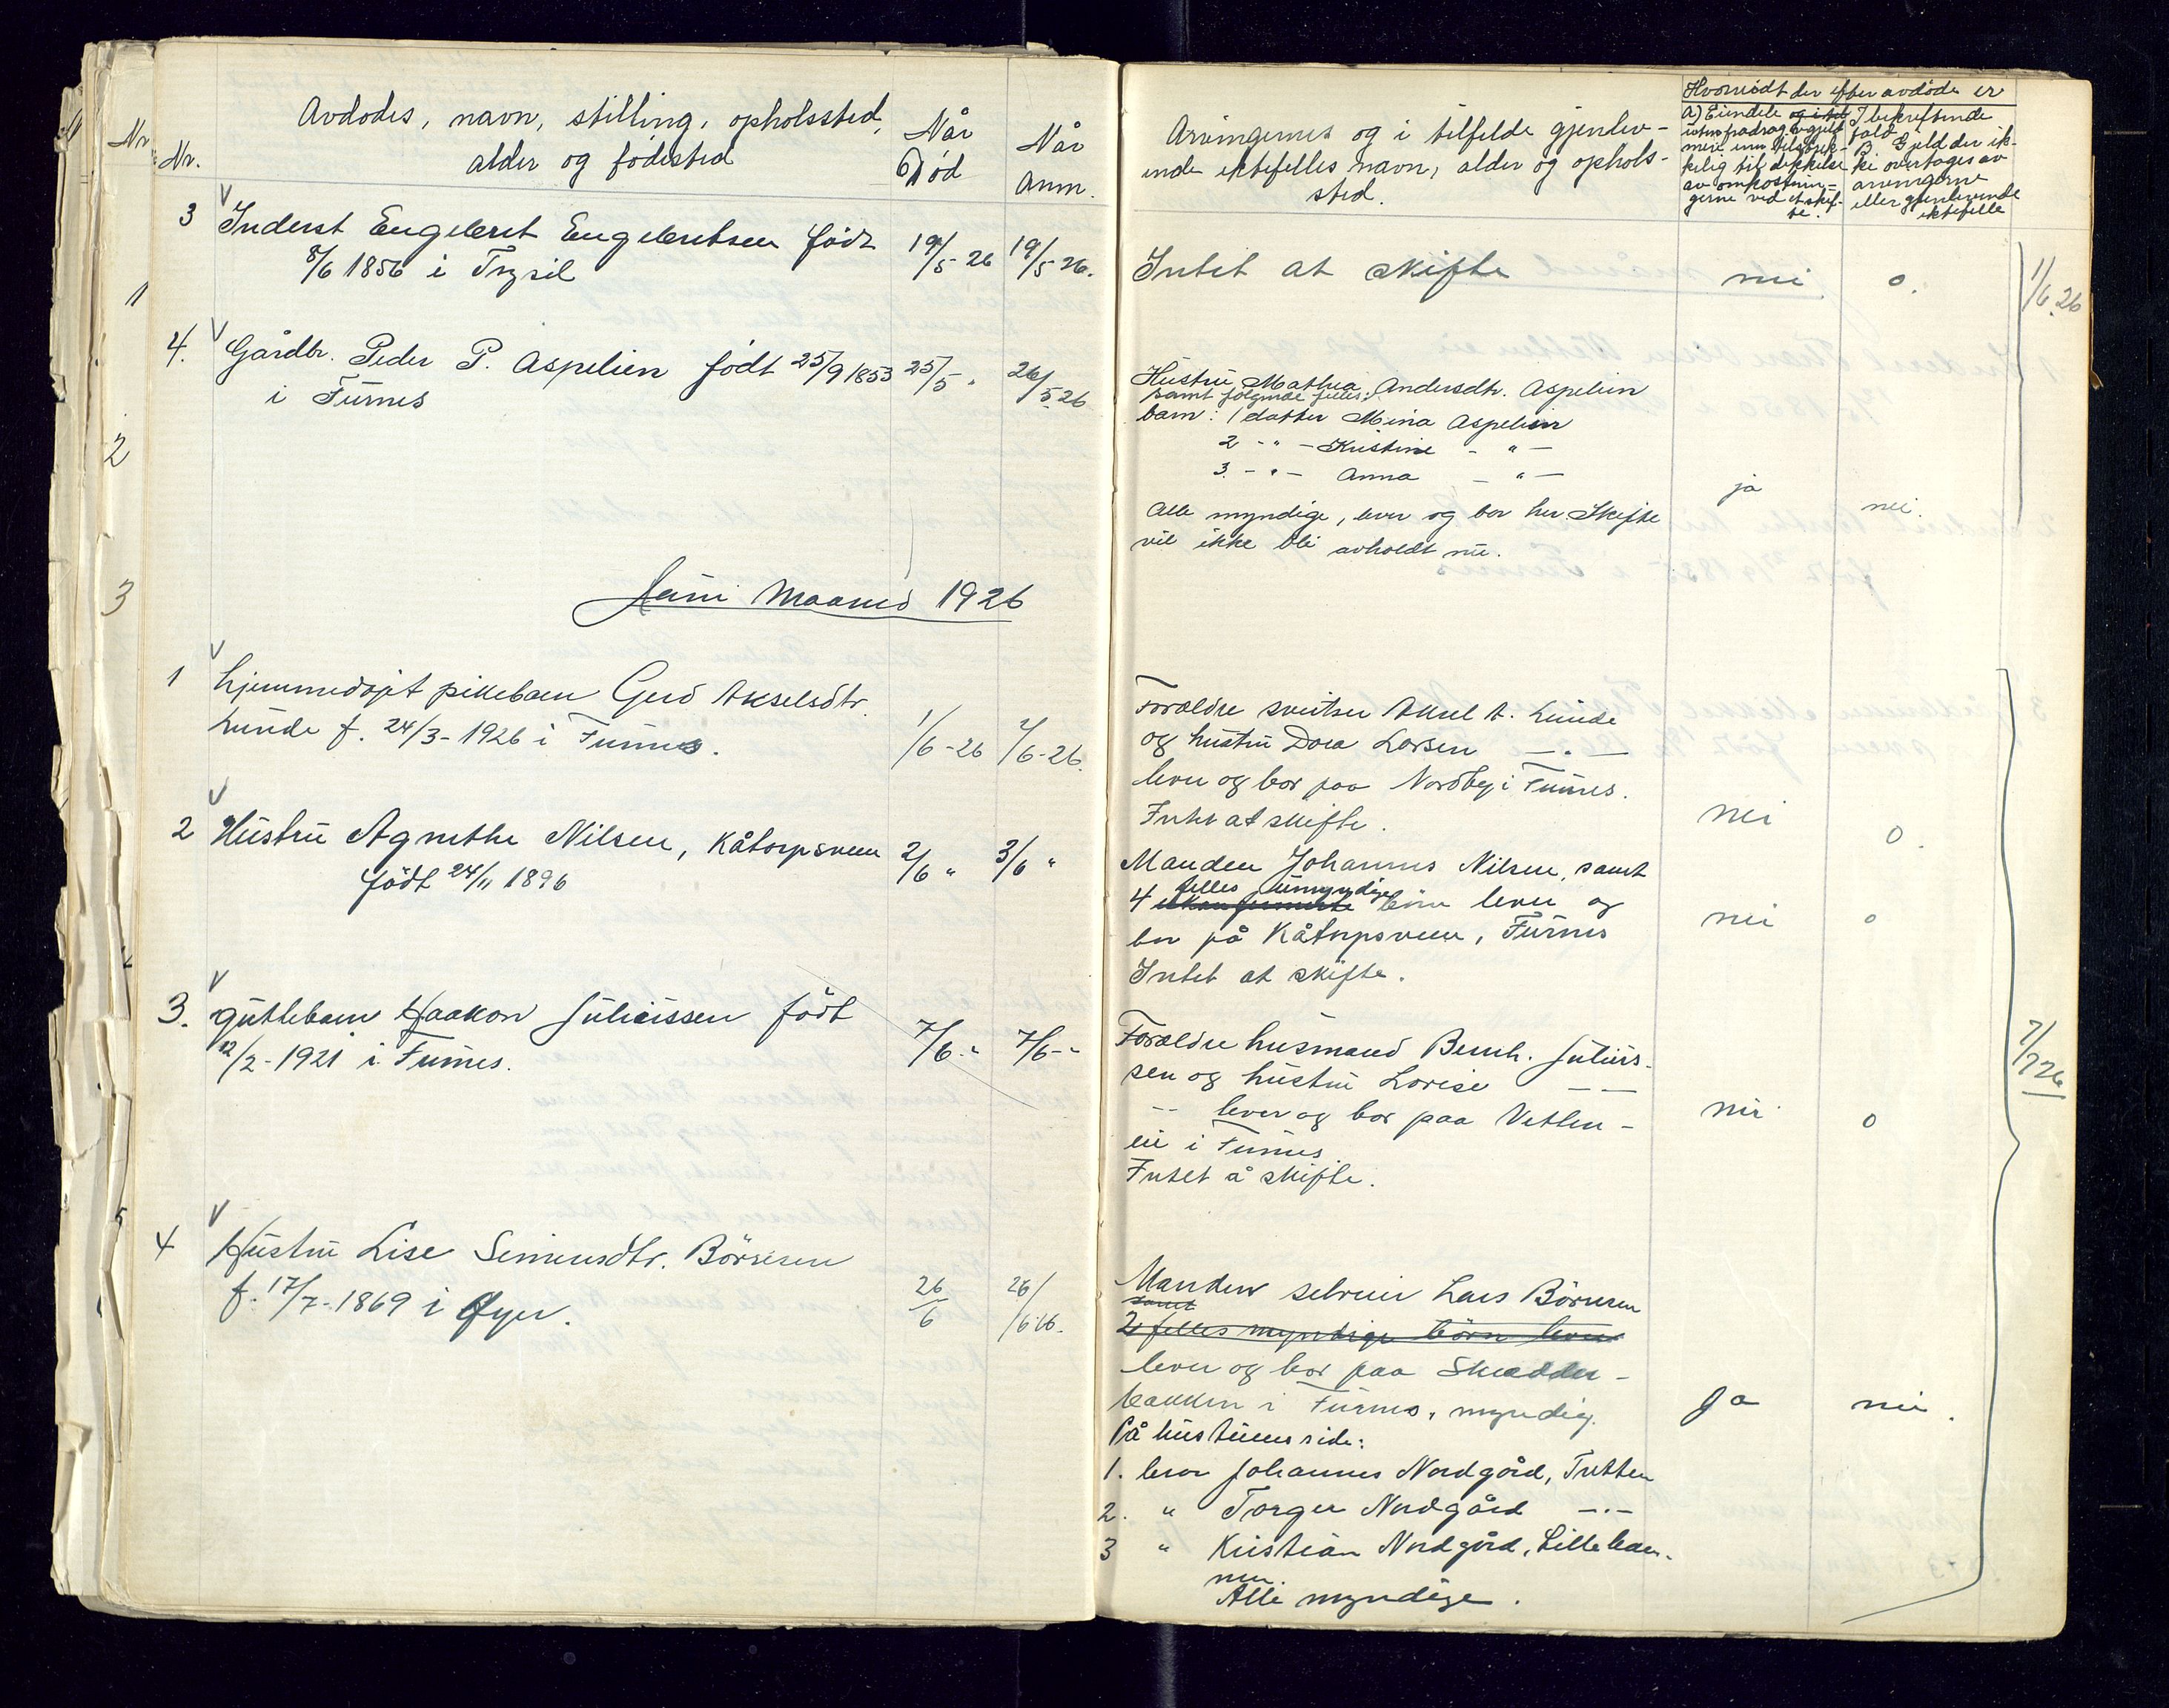 Nr.
Nr.
Avdødes, navn, stilling, opholssted,
alder og fødested
Når
Død
Når
anm.
3 Inderst Engebret Engebretsen født
8/6 1856 i Trysil
19/5 26
19/5 26.
4. Gårdbr. Peder P. Aspelien født 25/9 1853
i Furnes
25/5 "
26/5 26
Juni Maaned 1926
1 hjemmedøpt pikebarn Gerd Akselsdtr.
Lunde f. 24/3 - 1926 i Furnes.
1/6 - 26
2/6 - 26.
2 Hustru Agnethe Nilsen, Kåtorpsveen
født 24/11 1896
2/6 "
3/6 "
3. guttebarn Haakon Juliussen født
12/2 - 1921 i Furnes.
7/6 - "
7/6 - "
4 Hustru Lise Simensdtr. Börresen
f. 17/7 - 1869 i Øyer.
26/6
26/6 26.
1
2
3
Arvingernes og i tilfelde gjenlev-
ende ektefelles navn, alder og ophols-
sted.
Hvorvidt der efter avdøde er
A) Eiendele og i til
uten fradrag av gjeld
mere enn tilstrek-
kelig til dekkelse
av omkostnin-
gerne ved et skif-
te.
I bekreftende
fald
B. Gjeld der ik-
ke overtages av
arvingerne
eller gjenlevende
ektefelle
Intet at skifte
nei
0.
1/6.26
Hustru Mathea Andersdtr. Aspelien
samt følgende felles:
barn: 1 datter Mina Aspelien
2 - " - Kristine - " -
3. - " - Anna - " -
Alle myndige, lever og bor her. Skifte
vil ikke bli avholdt nu.
ja
nei.
Forældre sveitser Aksel A. Lunde
og hustru Dora Larsen — " —
lever og bor paa Nordby i Furnes.
Intet at skifte.
nei
0.
Manden Johannes Nilsen, samt
felles umyndige
4 børn lever og
bor på Kåtorpsveen, Furnes
Intet at skifte.
nei
0
Forældre husmand Bernh. Julius-
sen og hustru Lovise — —
-- lever og bor paa Vetlen-
eie i Furnes.
Intet å skifte.
nei
0
7/7 26
Manden selveier Lars Börresen
samt
2 felles myndige børn lever
lever og bor paa Skredder-
bakken i Furnes, myndig.
På hustruens side:
ja
nei.
1. bror Johannes Nordgård, Tretten
2. " Torger Nordgård — " —
3 " Kristian Nordgård, Lilleham-
mer.
Alle myndige.